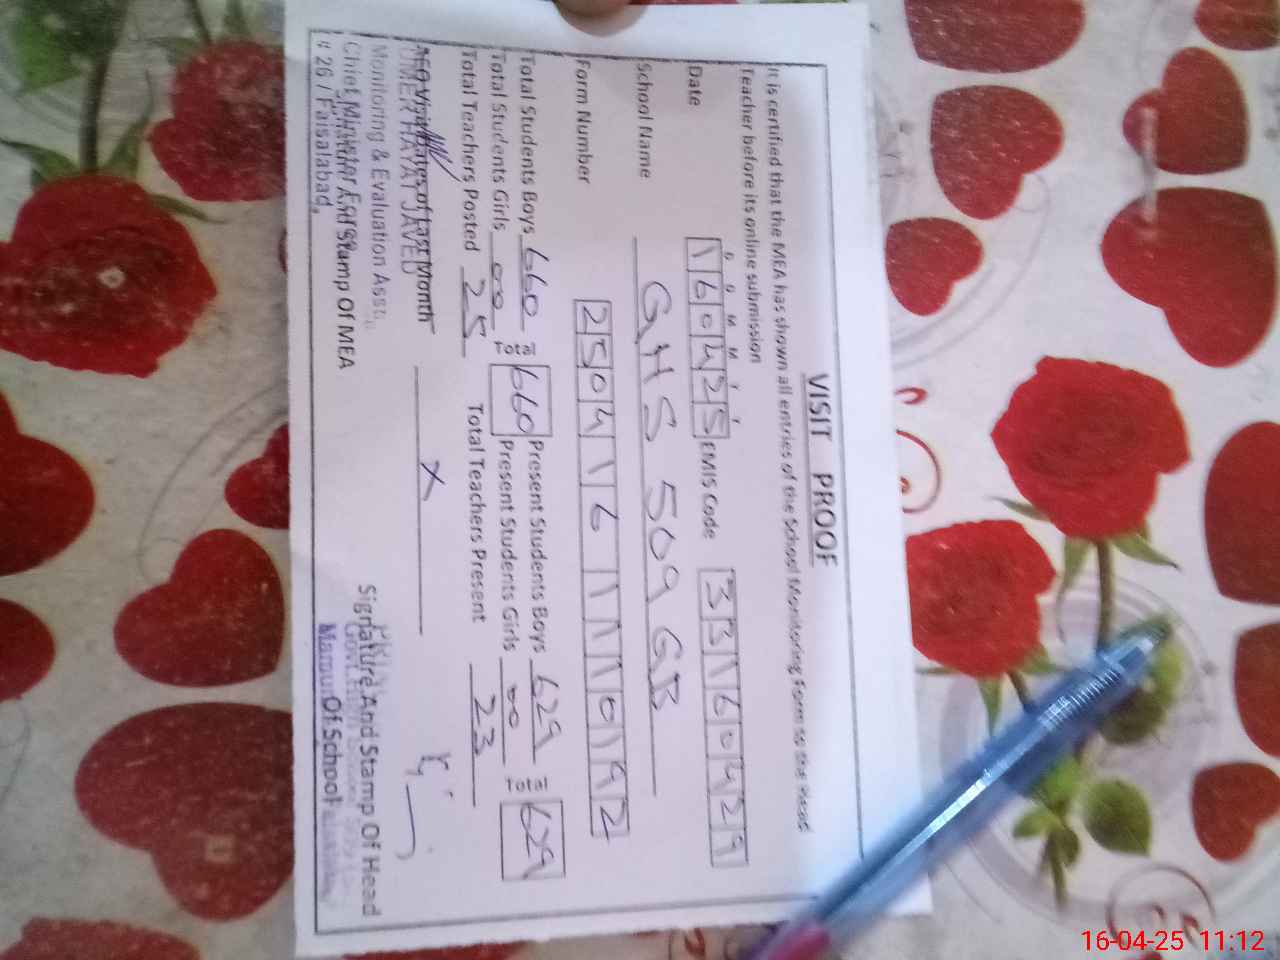 VISIT PROOF
It is certified that the MEA has shown all entries of the School Monitoring Form to the Head
Teacher before its online submission
D D M M Y Y
Date 160425 EMIS Code 33160429
School Name GHS 509 GB
Form Number 25041161110192
Total Students Boys 660 Total 660 Present Students Boys 629 Total 629
Total Students Girls 00 Present Students Girls 00
Total Teachers Posted 25 Total Teachers Present 23
AEO Visit Dates of Last Month X
UMER HAYAT JAVED
Monitoring & Evaluation Asst.
Chief Minister Force
# 26 / Faisalabad.
Signature And Stamp Of MEA
Signature And Stamp Of Head
Of School
16-04-25 11:12